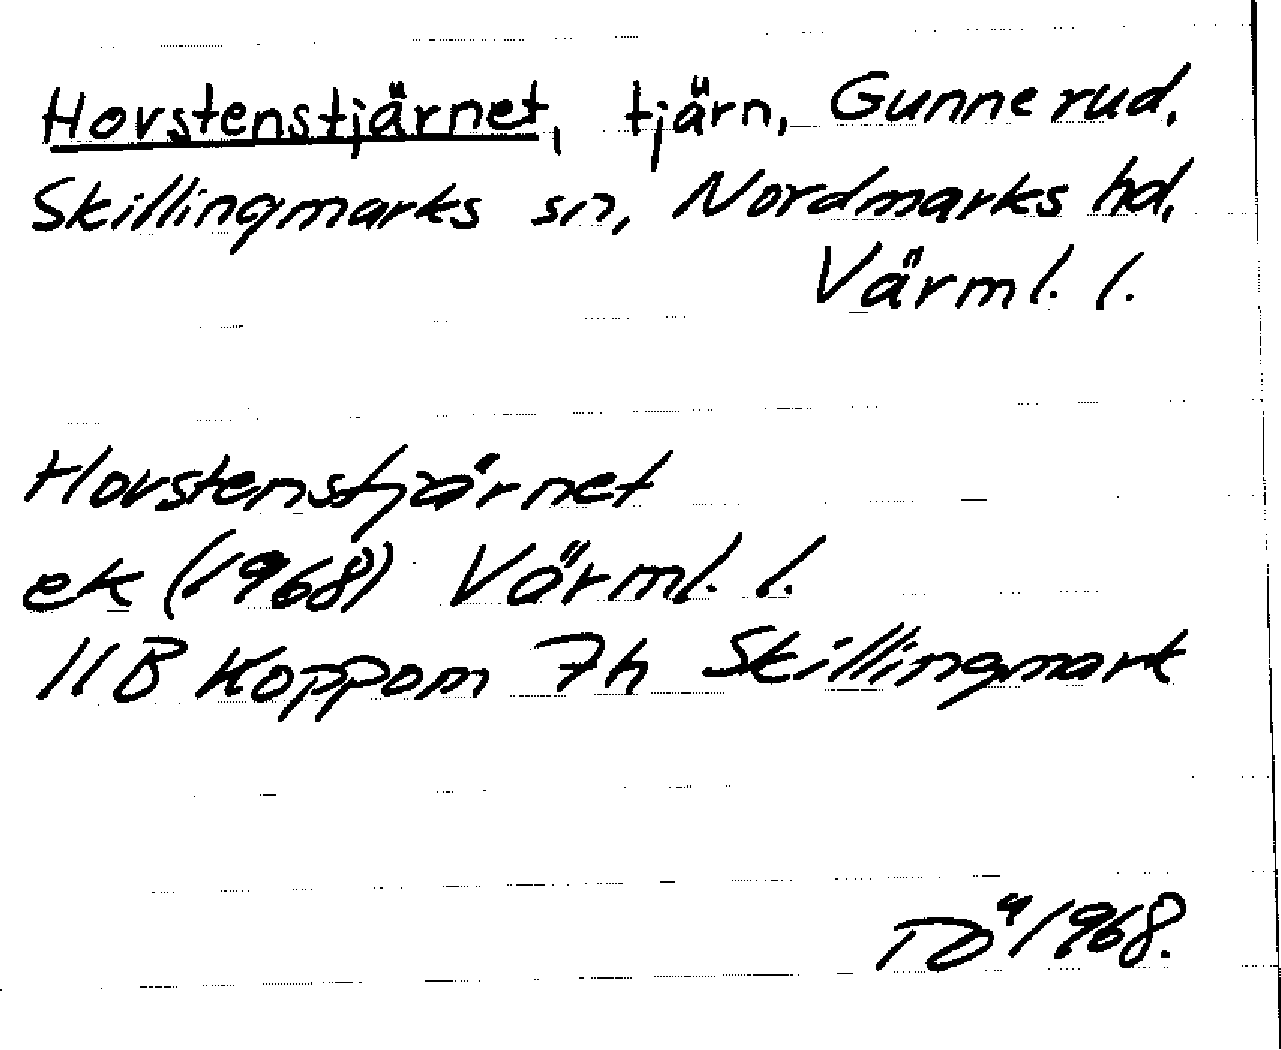 Hovstenstjärnet, tjärn, Gunnerud,
Skillingmarks sn, Nordmarks hd,
Värml. l.
Hovstenstjärnet
ek (1968) Värml. l.
11B Koppom 7h Skillingmark
TÖ 1968.